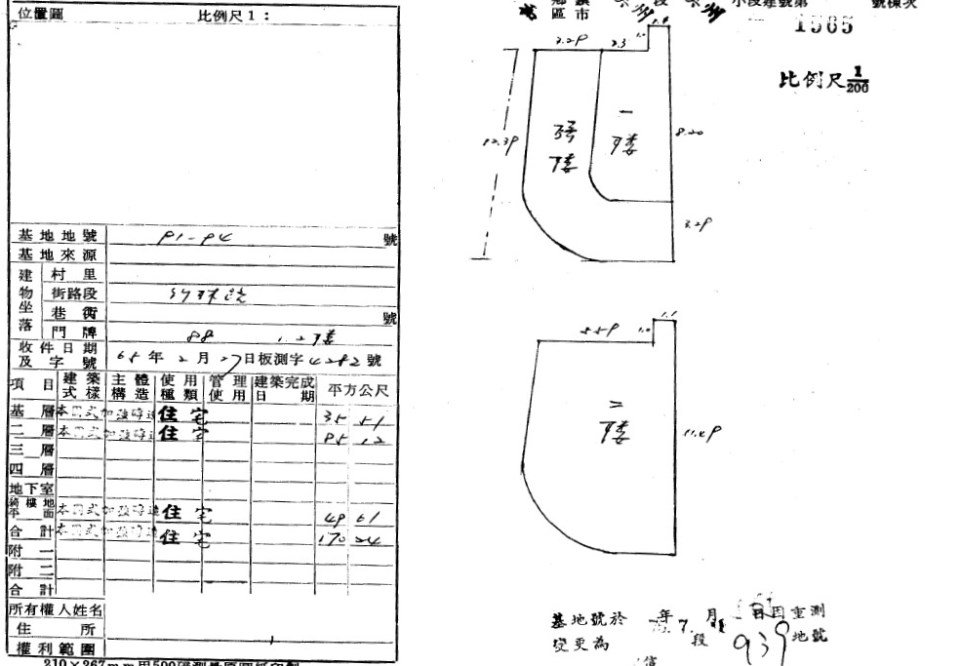 位置圖 比例尺1:
基地地號 91-94 號
基地來源
建物坐落
村里
街路段
巷衖 號
門牌 88 1.2樓
收件日期及字號 65年2月27日板測字4282號
項目 建築式樣 主體構造 使用種類 管理使用 建築完成日期 平方公尺
基層 本國式加強磚造 住宅 35 51
二層 本國式加強磚造 住宅 85 12
三層
四層
地下室
騎樓地平面 本國式加強磚造 住宅 49 61
合計 本國式加強磚造 住宅 170 24
附一
附二
合計
所有權人姓名
住所
權利範圍
210×267mm用500磅測量原圖紙印製
鄉鎮市區 段 小段建號第 號棟次
1565
比例尺 1/200
2.29 2.3 1.0 1.1
12.39
騎樓
一樓
8.20
3.29
5.59 1.0 1.1
二樓
11.49
基地號於 年7月 日因重測
變更為 段939地號